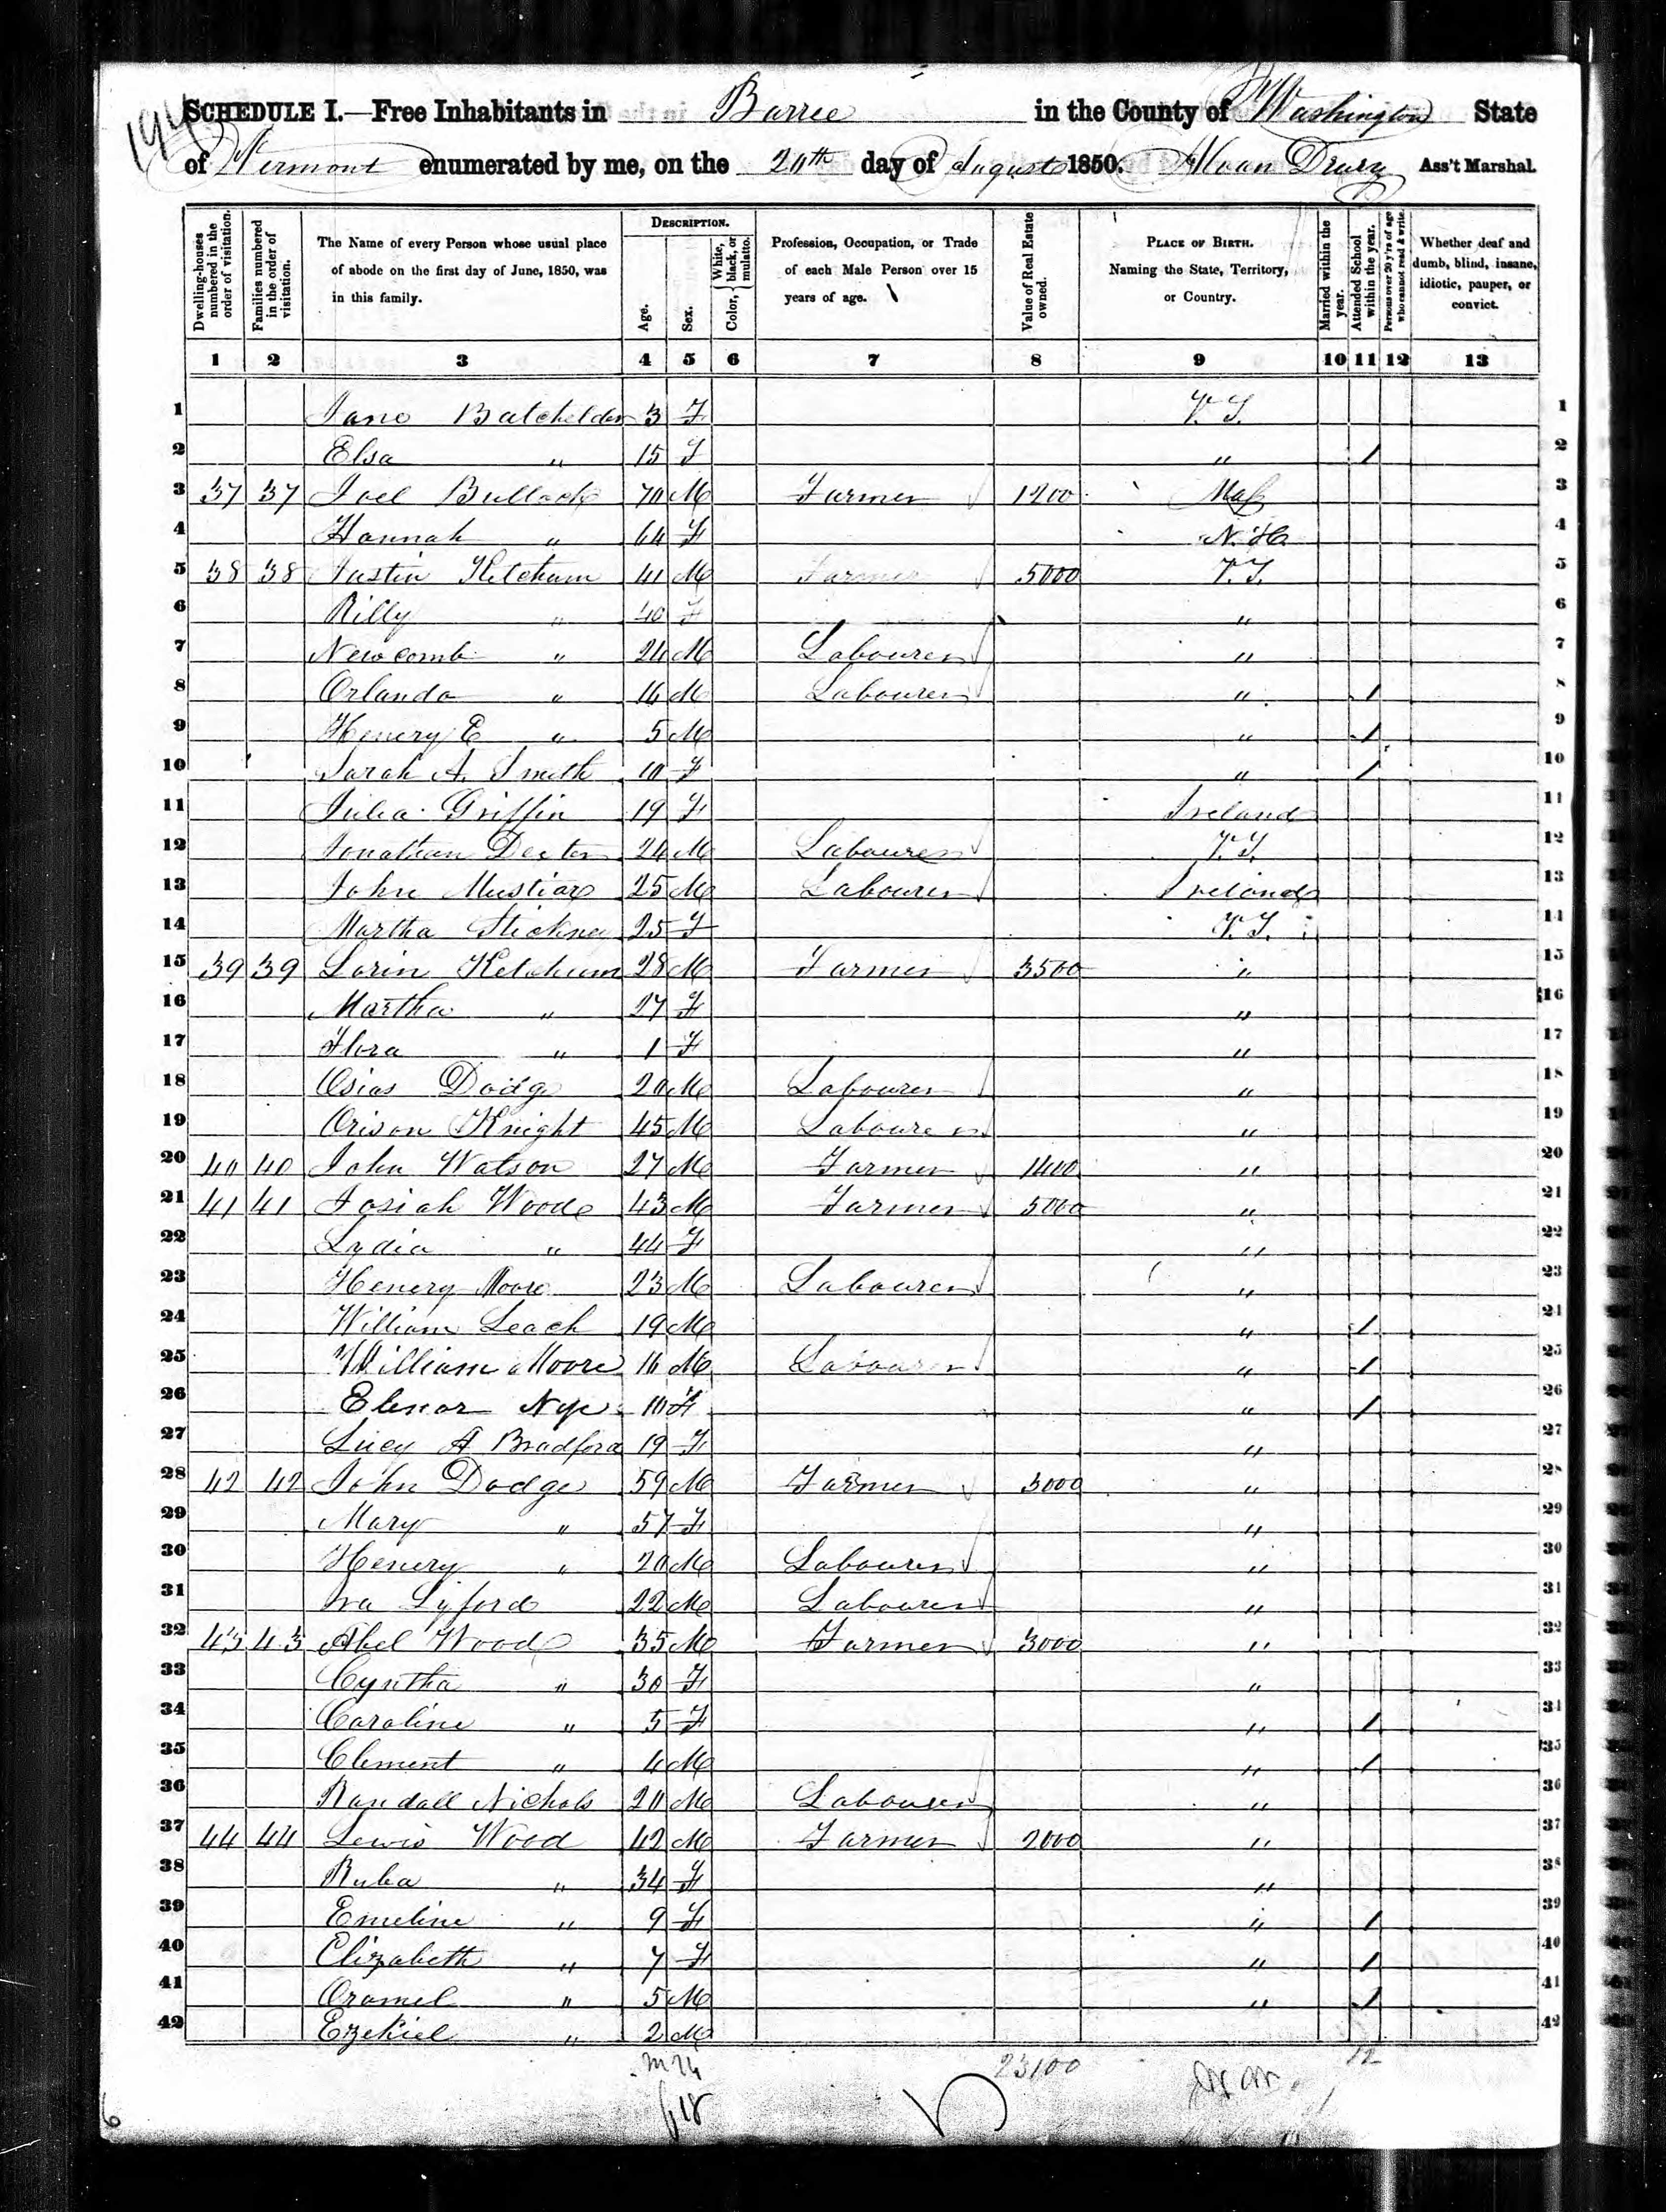 194
SCHEDULE I.—Free Inhabitants in Barree in the County of Washington State
of Vermont enumerated by me, on the 20th day of August 1850. Alvan Drury Ass't Marshal.
Dwelling-houses numbered in the order of visitation.
Families numbered in the order of visitation.
The Name of every Person whose usual place of abode on the first day of June, 1850, was in this family.
DESCRIPTION.
Age.
Sex.
Color, { White, black, or mulatto.
Profession, Occupation, or Trade of each Male Person over 15 years of age.
Value of Real Estate owned.
PLACE OF BIRTH. Naming the State, Territory, or Country.
Married within the year.
Attended School within the year.
Persons over 20 y'rs of age who cannot read & write.
Whether deaf and dumb, blind, insane, idiotic, pauper, or convict.
1 2 3 4 5 6 7 8 9 10 11 12 13
1 Jane Batchelder 3 F V.T. 1
2 Elsa " 15 F " / 2
3 37 37 Joel Bullock 70 M Farmer 1200 Mass 3
4 Hannah " 64 F N.H. 4
5 38 38 Justin Ketchum 41 M Farmer 5000 V.T. 5
6 Rilly " 40 F " 6
7 Newcomb " 24 M Labourer " 7
8 Orlando " 16 M Labourer " / 8
9 Henery E " 5 M " / 9
10 Sarah A. Smith 10 F " / 10
11 Julia Griffin 19 F Ireland 11
12 Jonathan Dexter 24 M Labourer V.T. 12
13 John 25 M Labourer Ireland 13
14 Martha Stickney 25 F V.T. 14
15 39 39 Lorin Ketchum 28 M Farmer 3500 " 15
16 Martha " 27 F " 16
17 Flora " 1 F " 17
18 Osias Dodge 20 M Labourer " 18
19 Orison Knight 45 M Labourer " 19
20 40 40 John Watson 27 M Farmer 1400 " 20
21 41 41 Josiah Wood 43 M Farmer 5000 " 21
22 Lydia " 44 F " 22
23 Henery Moore 23 M Labourer " 23
24 William Leach 19 M " / 24
25 William Moore 16 M Labourer " / 25
26 Elenor Nye 10 F " / 26
27 Lucy A Bradford 19 F " 27
28 42 42 John Dodge 59 M Farmer 3000 " 28
29 Mary " 57 F " 29
30 Henery " 20 M Labourer " 30
31 Ira Lyford 22 M Labourer " 31
32 43 43 Abel Wood 35 M Farmer 3000 " 32
33 Cyntha " 30 F " 33
34 Caroline " 5 F " / 34
35 Clement " 4 M " / 35
36 Randall Nichols 20 M Labourer " 36
37 44 44 Lewis Wood 42 M Farmer 2000 " 37
38 Ruba " 34 F " 38
39 Emeline " 9 F " / 39
40 Elizabeth " 7 F " / 40
41 Oramel " 5 M " / 41
42 Ezekiel " 2 M 42
m 24 23100 12
f 18